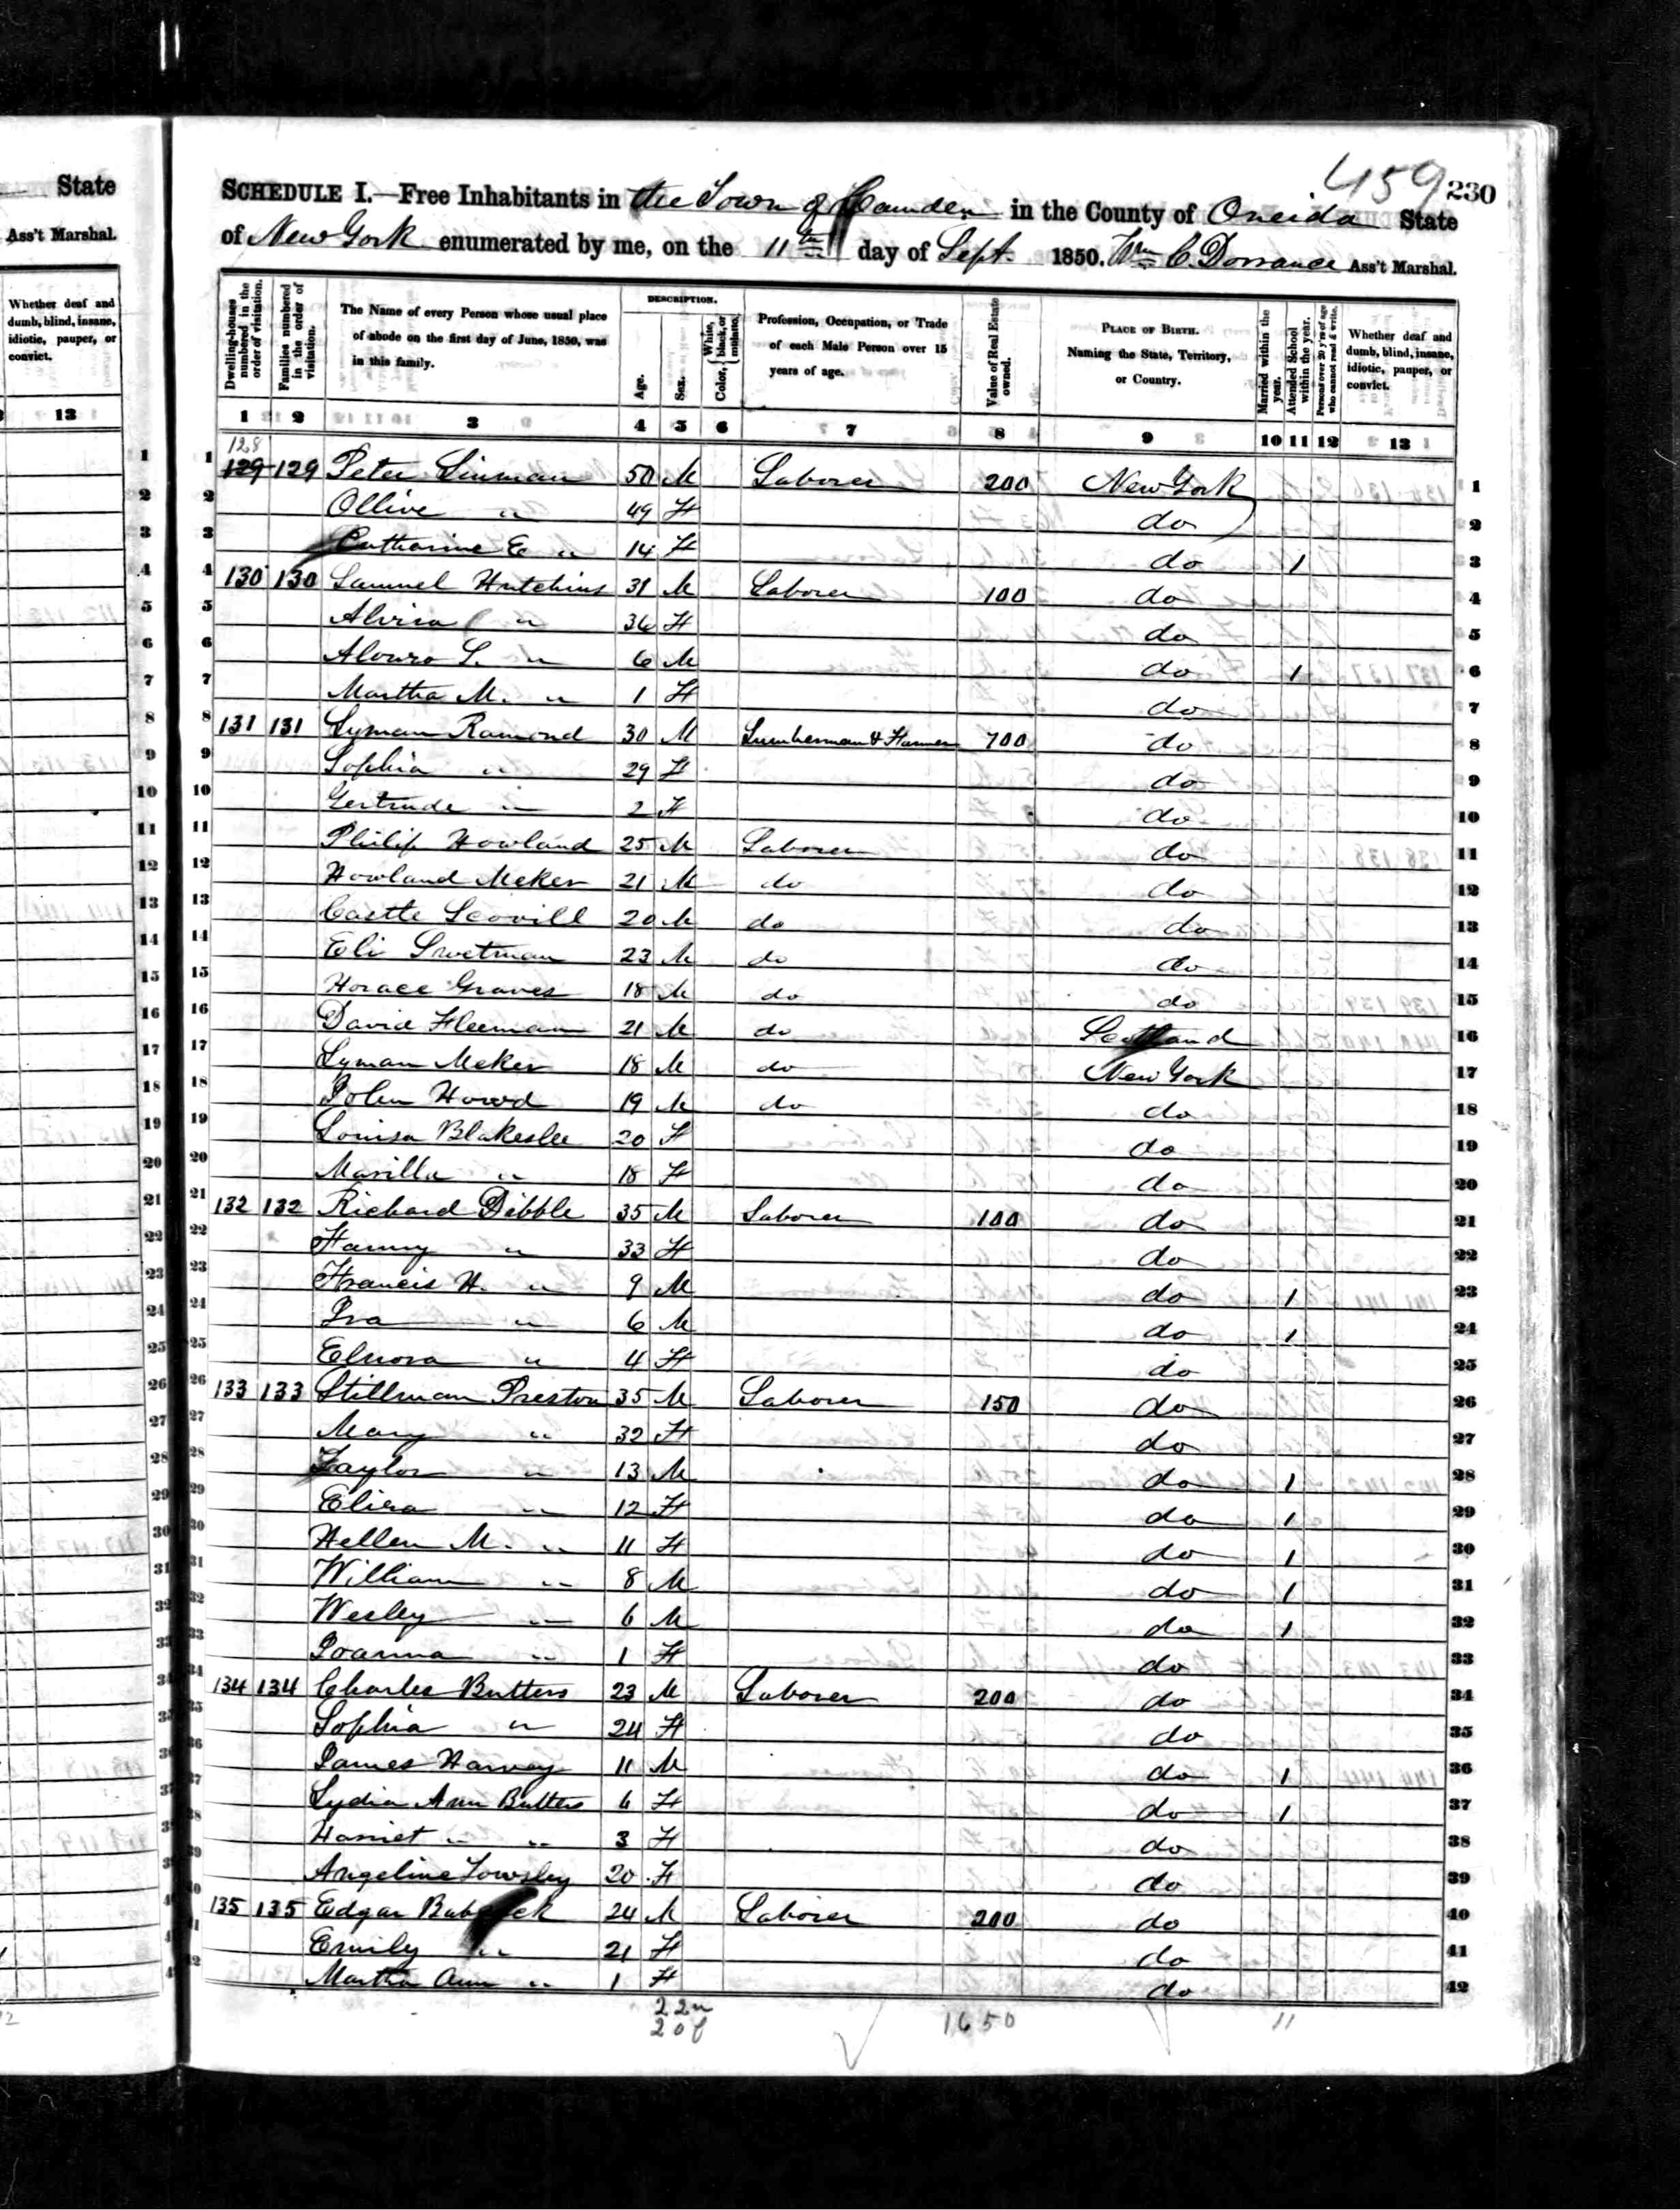 State
Ass't Marshal.
Whether deaf and
dumb, blind, insane,
idiotic, pauper, or
convict.
13
459 230
SCHEDULE I.—Free Inhabitants in the Town of Camden in the County of Oneida State
of New York enumerated by me, on the 11th day of Sept. 1850. Wm C. Dorrance Ass't Marshal.
Dwelling-houses numbered in the order of visitation.
Families numbered in the order of visitation.
The Name of every Person whose usual place of abode on the first day of June, 1850, was in this family.
DESCRIPTION.
Age.
Sex.
Color, White, black, or mulatto.
Profession, Occupation, or Trade of each Male Person over 15 years of age.
Value of Real Estate owned.
PLACE OF BIRTH. Naming the State, Territory, or Country.
Married within the year.
Attended School within the year.
Persons over 20 y'rs of age who cannot read & write.
Whether deaf and dumb, blind, insane, idiotic, pauper, or convict.
1 2 3 4 5 6 7 8 9 10 11 12 13
128
1 129 129 Peter 50 M Laborer 200 New York 1
2 Ollive " 49 F do 2
3 Catharine E " 14 F do 1 3
4 130 130 Samuel Hutchins 31 M Laborer 100 do 4
5 Alvira " 36 F do 5
6 Alonzo S. " 6 M do 1 6
7 Martha M. " 1 F do 7
8 131 131 Lyman Ramond 30 M Lumberman & Farmer 700 do 8
9 Sophia " 29 F do 9
10 Gertrude " 2 F do 10
11 Philip Howland 25 M Laborer do 11
12 Howland Meker 21 M do do 12
13 Castle Scovill 20 M do do 13
14 Eli Swetman 23 M do do 14
15 Horace Graves 18 M do do 15
16 David Fleeman 21 M do Scotland 16
17 Lyman Meker 18 M do New York 17
18 John Howd 19 M do do 18
19 Louisa Blakeslee 20 F do 19
20 Marilla " 18 F do 20
21 132 132 Richard Dibble 35 M Laborer 100 do 21
22 Fanny " 33 F do 22
23 Francis H. " 9 M do 1 23
24 Ira " 6 M do 1 24
25 Elnora " 4 F do 25
26 133 133 Stillman Preston 35 M Laborer 150 do 26
27 Mary " 32 F do 27
28 Taylor " 13 M do 1 28
29 Eliza " 12 F do 1 29
30 Hellen M. " 11 F do 1 30
31 William " 8 M do 1 31
32 Wesley " 6 M do 1 32
33 Joanna " 1 F do 33
34 134 134 Charles Butters 23 M Laborer 200 do 34
35 Sophia " 24 F do 35
36 James Harvey 11 M do 1 36
37 Lydia Ann Butters 6 F do 1 37
38 Harriet " " 3 F do 38
39 Angeline Towsley 20 F do 39
40 135 135 Edgar Babcock 24 M Laborer 200 do 40
41 Emily " 21 F do 41
42 Martha Ann " 1 F do 42
22m
20f 1650 11